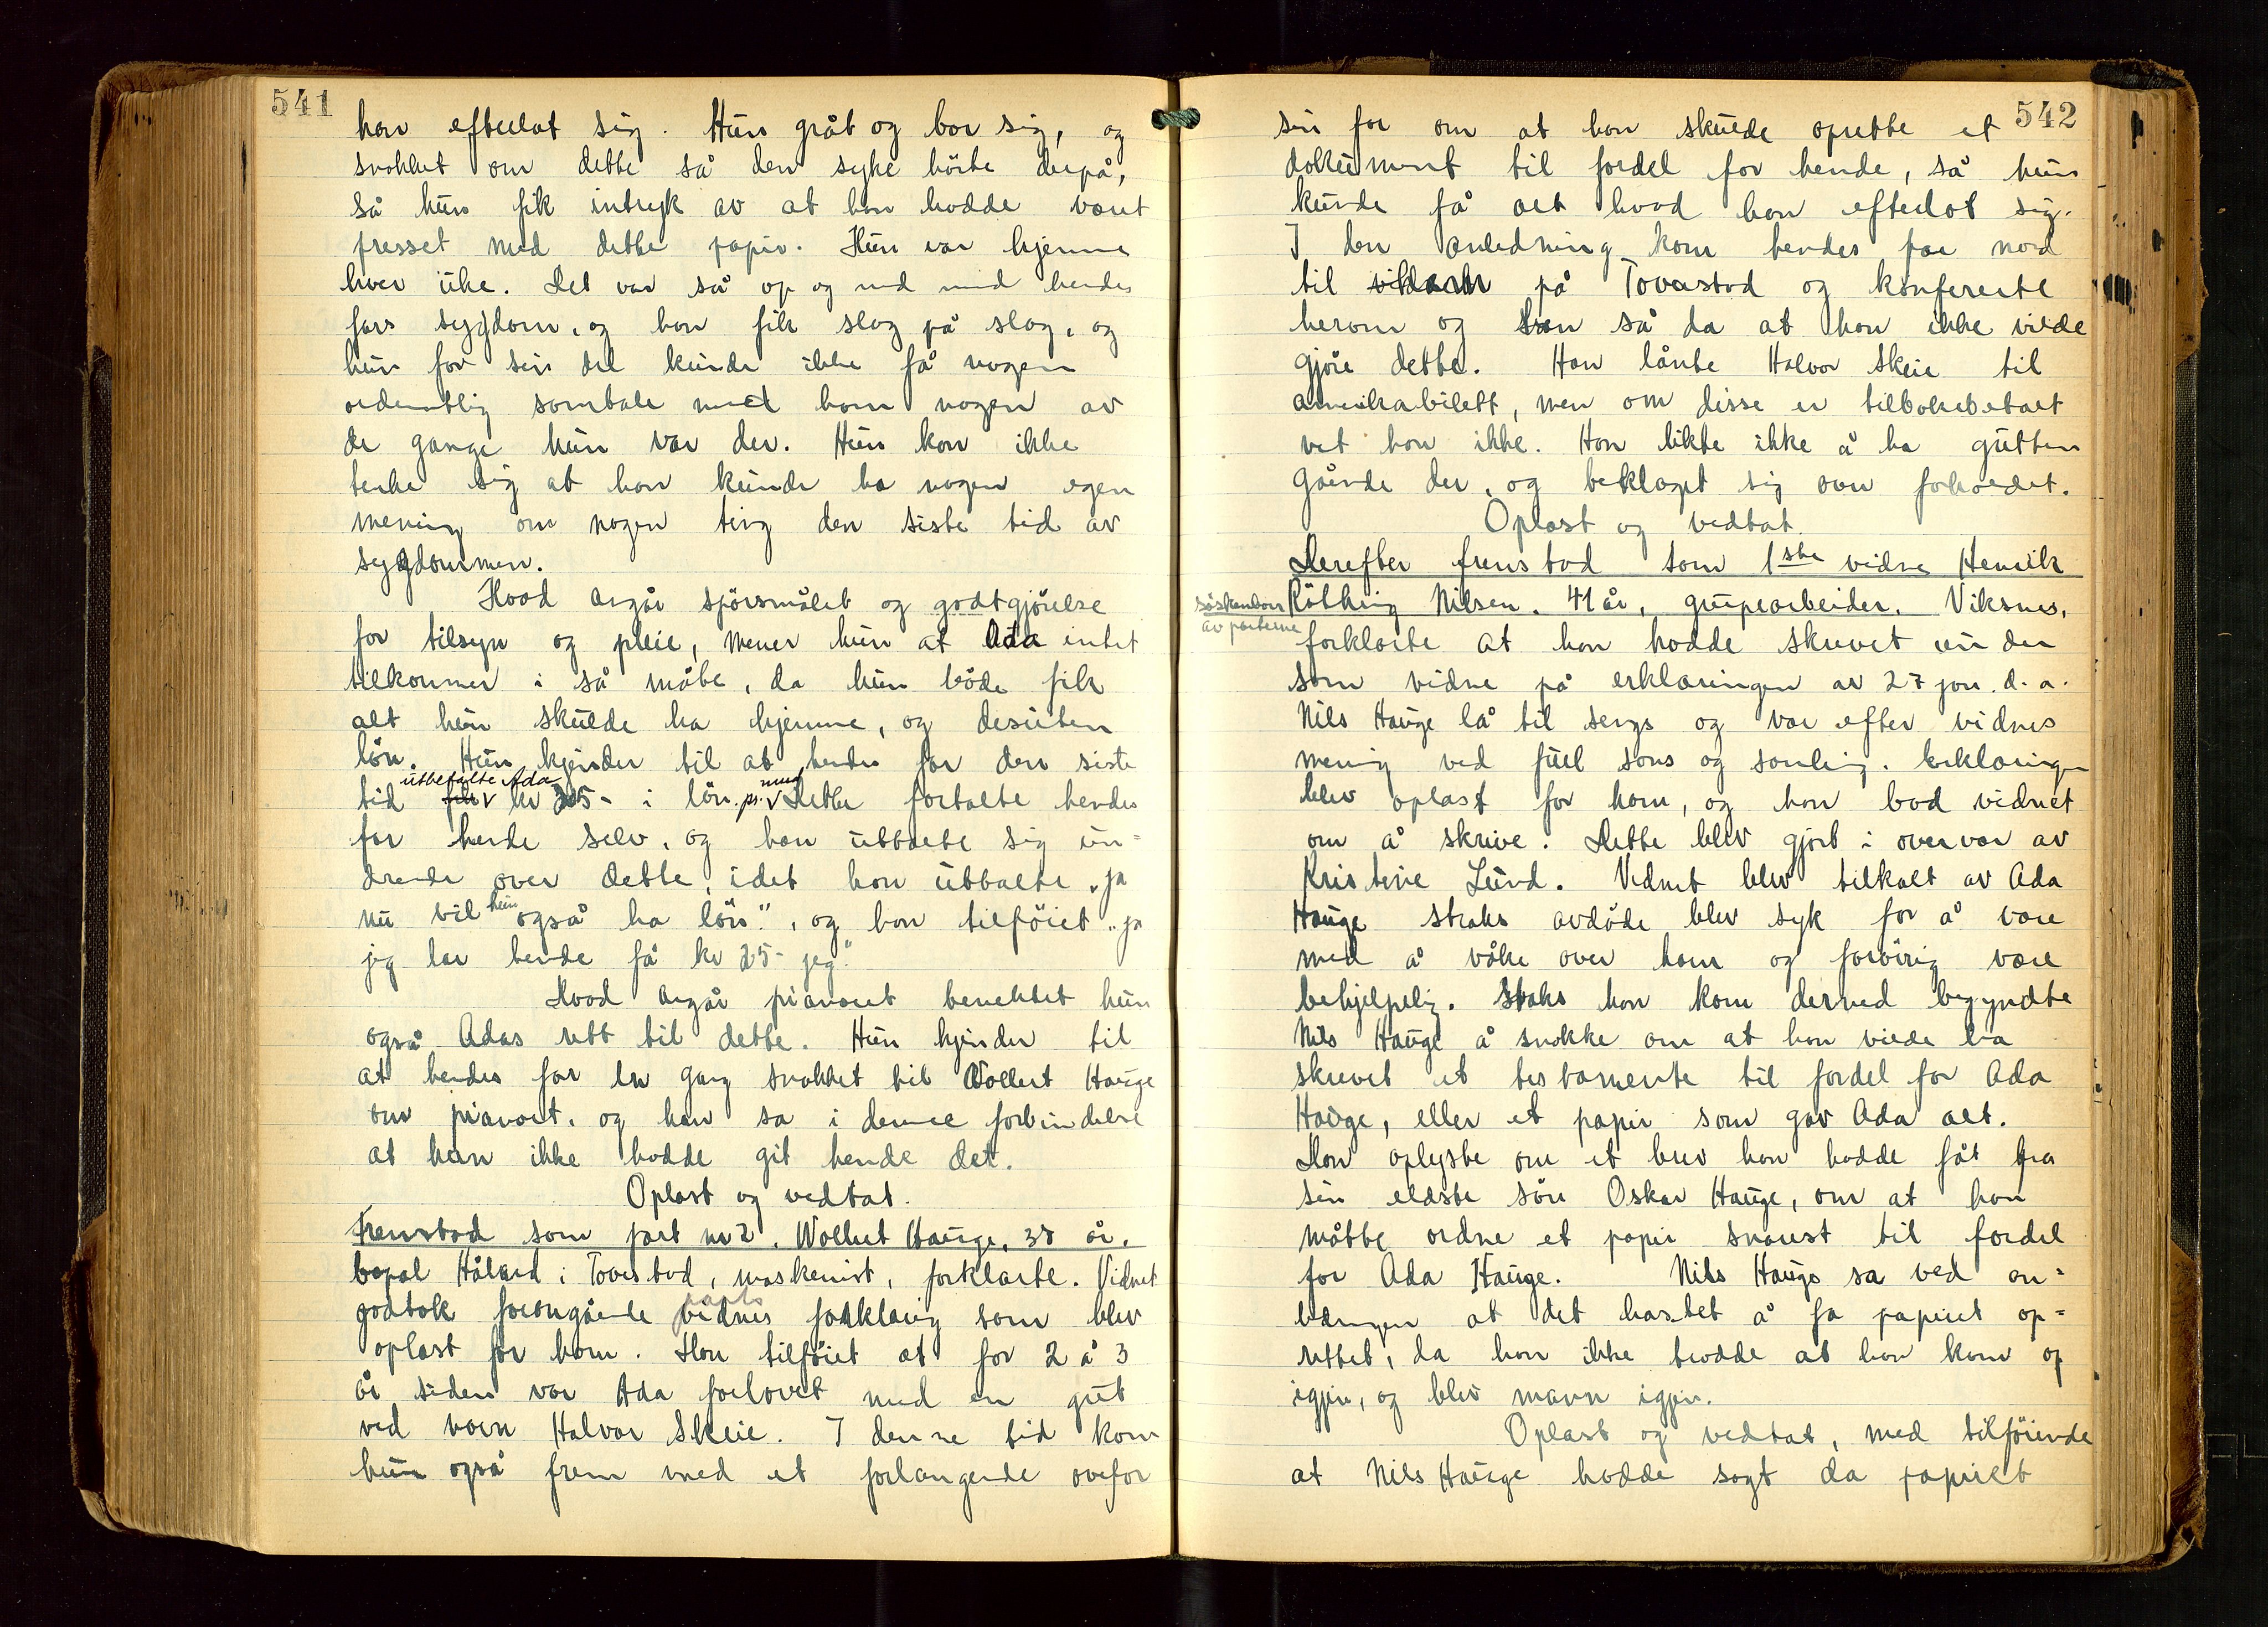 541
han efterlot sig. Hun gråt og bar sig, og
snakket om dette så den syke hörte derpå,
så hun fik intryk av at han hadde været
presset med dette papir. Hun var hjemme
hver uke. Det var så op og ned med hendes
fars sygdom, og han fik slag på slag, og
hun for sin del kunde ikke få nogen
ordentlig samtale med ham nogen av
de gange hun var der. Hun kan ikke
tenke sig at han kunde ha nogen egen
mening om nogen ting den siste tid av
sygdommen.
Hvad angår spörsmålet og godtgjörelse
for tilsyn og pleie, mener hun at Ada intet
tilkommer i så måte, da hun både fik
alt hun skulde ha hjemme, og desuten
lön. Hun kjender til at hendes far den siste
utbetalte Ada mnd
tid fik kr 25- i lön. pr. Dette fortalte hendes
far hende selv, og han uttalte sig un=
drende over dette, idet han uttalte „ja
nu vil hun også ha lön", og han tilföiet „ja
jeg lar hende få kr 25- jeg."
Hvad angår pianoet benektet hun
også Adas rett til dette. Hun kjender til
at hendes far en gang snakket til Wollert Hauge
om pianoet, og han sa i denne forbindelse
at han ikke hadde git hende det.
Oplæst og vedtat.
Fremstod som part nr 2. Wollert Hauge, 38 år,
bopal Håland i Torvestad, maskenist, forklarte. Vidnet
parts
godtok forangående vidnes forklaring som blev
oplæst for ham. Han tilföiet at for 2 á 3
år siden var Ada forlovet med en gut
ved navn Halvor Skeie. I denne tid kom
hun også frem med et forlangende ovefor
542
sin far om at han skulde oprette et
dokument til fordel for hende, så hun
kunde få alt hvad han efterlot sig.
I den anledning kom hendes far nord
til på Torvastad og konfererte
herom og han sa da at han ikke vilde
gjöre dette. Han lånte Halvor Skeie til
amerikabilett, men om disse er tilbakebetalt
vet han ikke. Han likte ikke å ha gutten
gående der, og beklaget sig over forholdet.
Oplæst og vedtat.
Derefter fremstod som 1ste vidne Henrik
söskenbarn
av parterne
Röthing Nilsen. 41 år, grupearbeider, Viksnes,
forklarte at han hadde skrevet under
som vidne på erklæringen av 27 jan. d. a.
Nils Hauge lå til sengs og var efter vidnes
mening ved fuld sans og samling. Erklæringen
blev oplæst for ham, og han bad vidnet
om å skrive. Dette blev gjort i overvær av
Kristine Lund. Vidnet blev tilkalt av Ada
Hauge straks avdöde blev syk for å være
med å våke over ham og forövrig være
behjelpelig. Straks han kom derned begyndte
Nils Hauge å snakke om at han vilde ha
skrevet et testamente til fordel for Ada
Hauge, eller et papir som gav Ada alt.
Han oplyste om et brev han hadde fåt fra
sin eldste sön Oskar Hauge, om at han
måtte ordne et papir snarest til fordel
for Ada Hauge. Nils Hauge sa ved an=
ledningen at det hastet å få papiret op=
rettet, da han ikke trodde at han kom op
igjen, og blev mann igjen.
Oplæst og vedtat, med tilföiende
at Nils Hauge hadde sagt da papiret